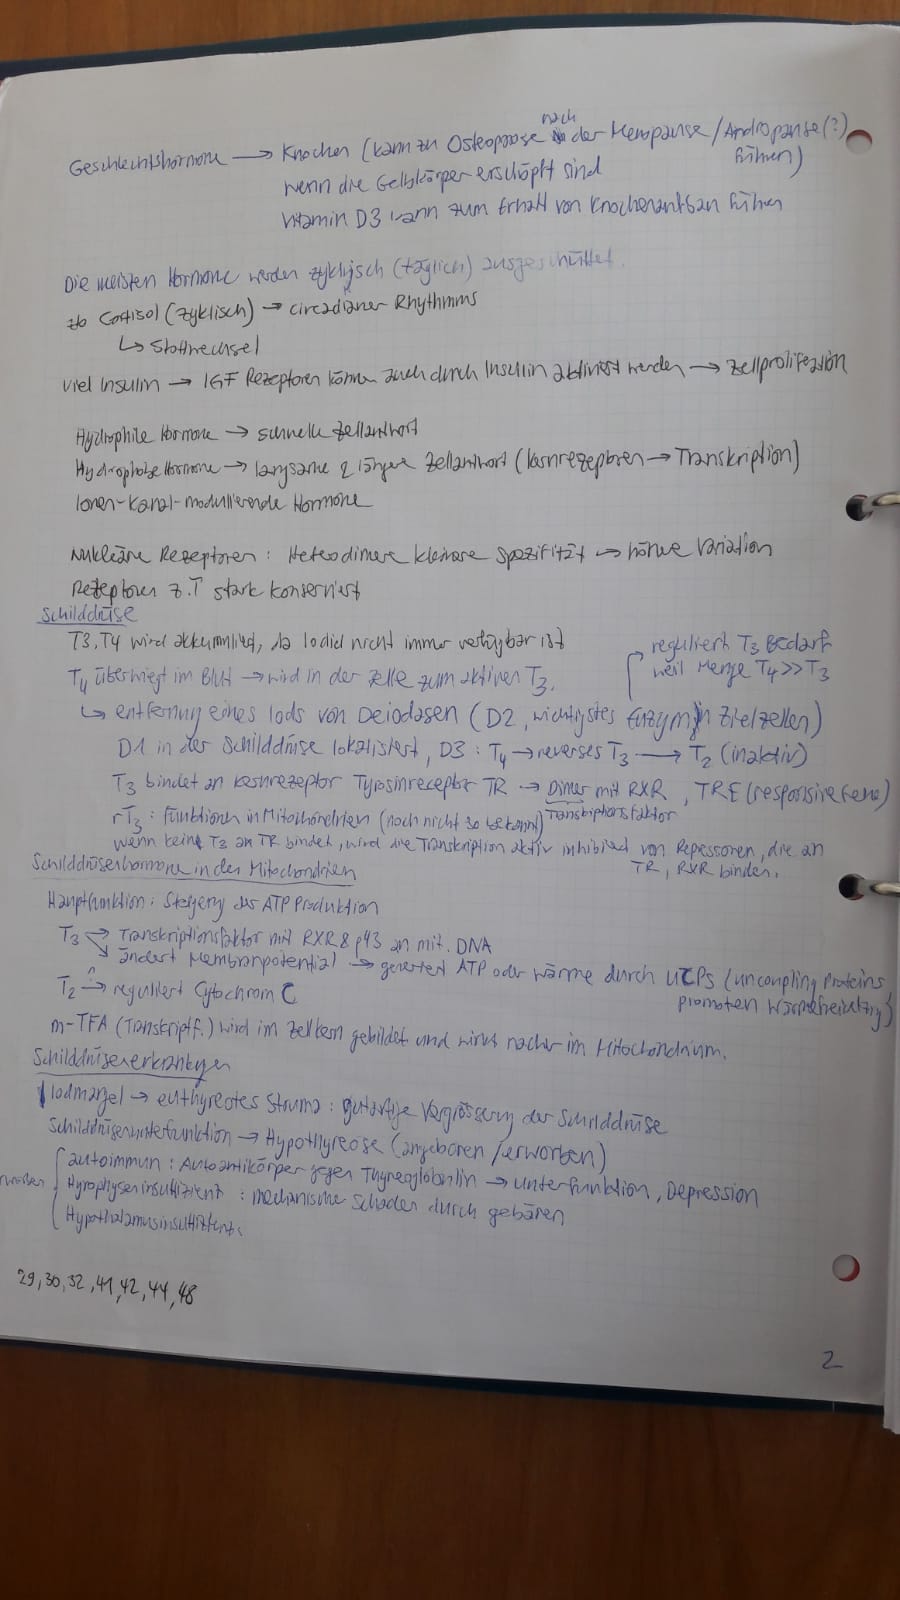 nach
Geschlechtshormone → Knochen (kann zu Osteoporose der Menopause / Andropause (?)
führen)
wenn die Gelbkörper erschöpft sind
Vitamin D3 kann zum Erhalt von Knochenaufbau führen
Die meisten Hormone werden zyklisch (täglich) ausgeschüttet.
zb Cortisol (zyklisch) → circadianer Rhythmus
↳ Stoffwechsel
Viel Insulin → IGF Rezeptoren können auch durch Insulin aktiviert werden → Zellproliferation
Hydrophile Hormone → schnelle Zellantwort
Hydrophobe Hormone → langsame & längere Zellantwort (Kernrezeptoren → Transkription)
Ionen-Kanal-modulierende Hormone
Nukleäre Rezeptoren : Heterodimere kleinere Spezifität → höhere Variation
Rezeptoren z.T stark konserviert
Schilddrüse
T3, T4 wird akkumuliert, da Iodid nicht immer verfügbar ist
reguliert T3 Bedarf
weil Menge T4 >> T3
T4 überwiegt im Blut → wird in der Zelle zum aktiven T3.
↳ entfernung eines Iods von Deiodasen (D2, wichtigstes Enzym in Zielzellen)
D1 in der Schilddrüse lokalisiert, D3 : T4 → reverses T3 → T2 (inaktiv)
T3 bindet an Kernrezeptor Tyrosinreceptor TR → Dimer mit RXR , TRE (responsive Gene)
Transkriptionsfaktor
rT3 : Funktionen in Mitochondrien (noch nicht so bekannt)
wenn kein T3 an TR bindet, wird die Transkription aktiv inhibiert von Repressoren, die an
TR, RXR binden.
Schilddrüsenhormone in den Mitochondrien
Hauptfunktion : Steigerung der ATP Produktion
T3 → Transkriptionsfaktor mit RXR & p43 an mit. DNA
↘ ändert Membranpotential → generiert ATP oder Wärme durch UCPs (uncoupling Proteins
promoten )
T2 → reguliert Cytochrom C
m-TFA (Transkriptf.) wird im Zellkern gebildet und wirkt nachher im Mitochondrium.
Schilddrüsenerkrankungen
Iodmangel → euthyreotes Struma : gutartige Vergrösserung der Schilddrüse
Schilddrüsenunterfunktion → Hypothyreose (angeboren / erworben)
autoimmun : Autoantikörper gegen Thyreoglobulin → unterfunktion, Depression
Hypophyseninsuffizient : mechanische Schäden durch gebären
Hypothalamusinsuffizient
29, 30, 32, 41, 42, 44, 48
2